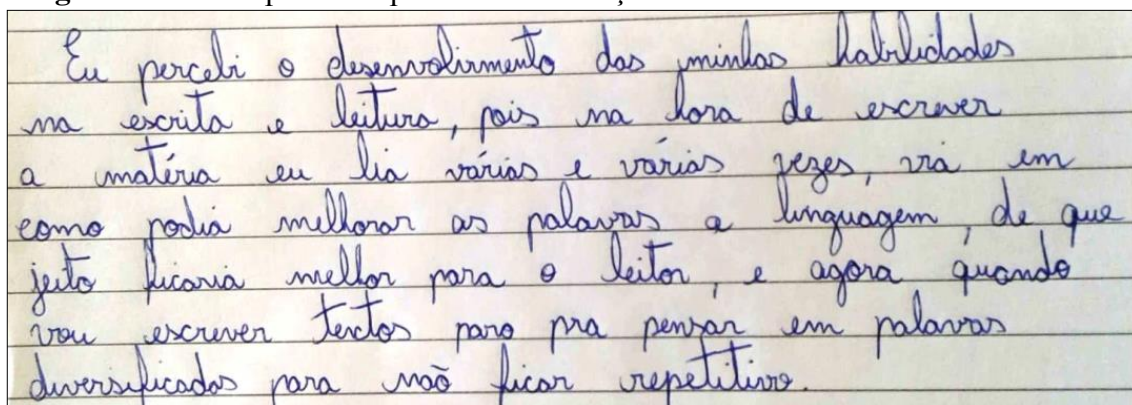 Eu percebi o desenvolvimento das minhas habilidades
na escrita e leitura, pois na hora de escrever
a matéria eu lia várias e várias vezes, via em
como podia melhorar as palavras a linguagem, de que
jeito ficaria melhor para o leitor, e agora quando
vou escrever textos paro pra pensar em palavras
diversificadas para não ficar repetitivo.